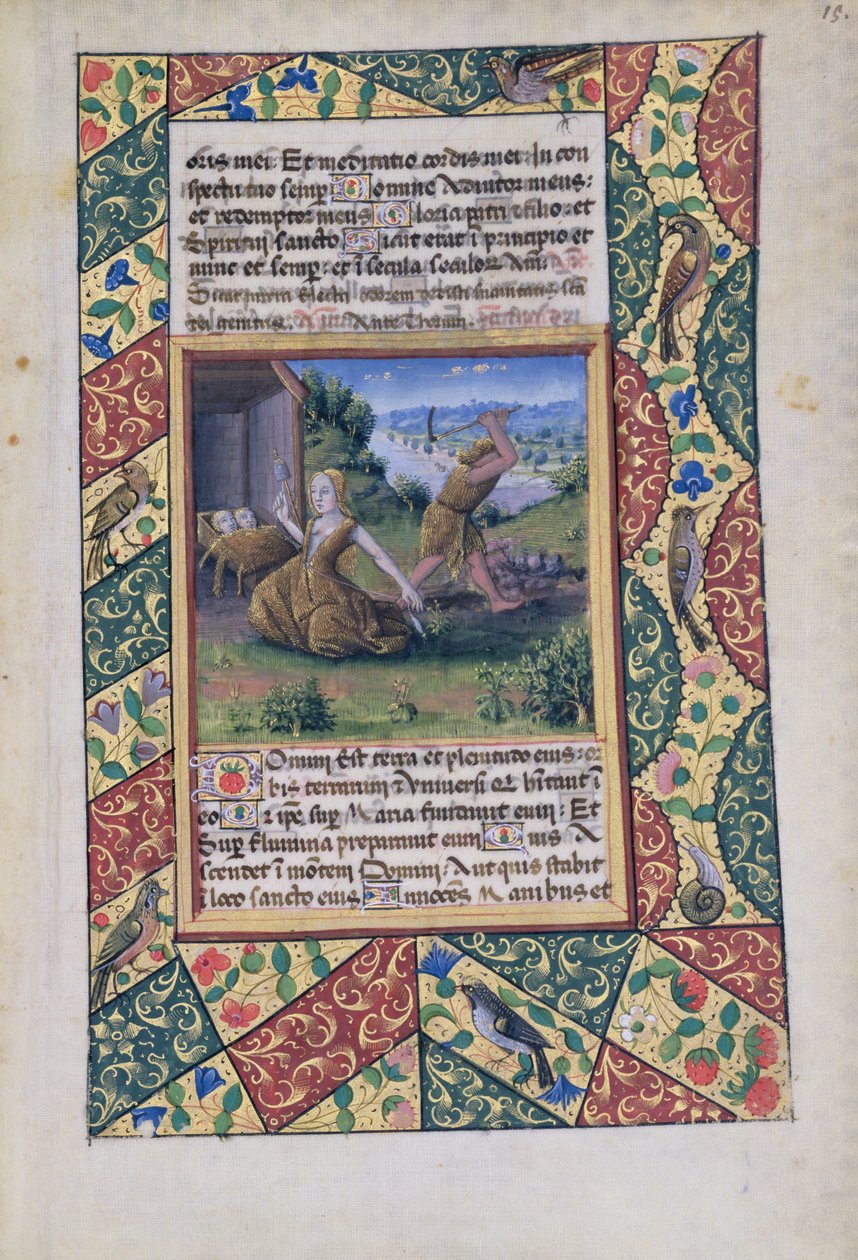 15.
oris mei: Et meditatio cordis mei In con
spectu tuo semp Domine Adiutor meus:
et redemptor meus Gloria patri & filio: et
Spiritui sancto Sicut erat i principio et
nunc et semp: et i secula seculoR Am.
Sicut mirra Electa odorem
Ante thorum
Domini Est terra et plenitudo eius: Or
bis terrarum & Universi Qui hitant i
eo Qr ipe sup Maria fundavit eum: Et
Sup flumina preparavit eum Quis A
scendet i motem Domini: Aut quis stabit
i loco sancto eius Innoces Manibus et